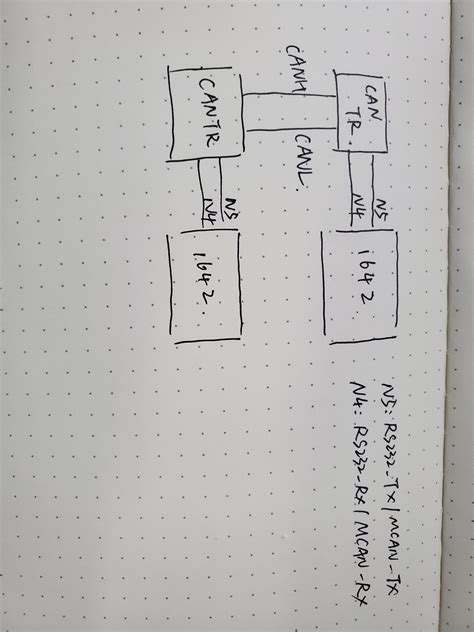 CANH
CAN
TR.
CANTR
CANL.
N5
N4
N5
N4
1642
1642.
N5: RS232-TX/MCAN-TX
N4: RS232-RX/MCAN-RX